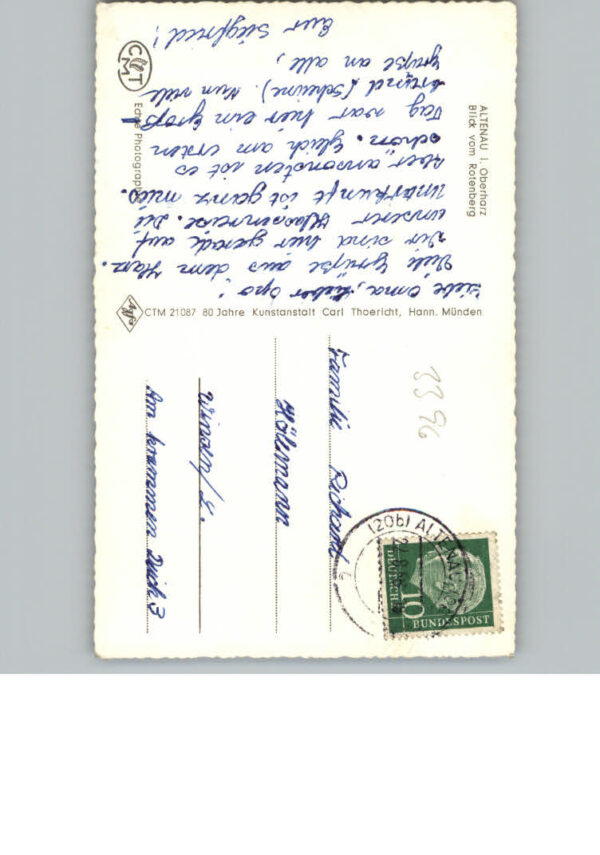 ALTENAU i. Oberharz
Blick vom Rotenberg
Liebe Oma, lieber Opa!
Viele Grüße aus dem Harz.
Wir sind hier gerade auf
unserer Klassenreise. Die
Unterkunft ist ganz mies.
Aber ansonsten ist es
schön. Gleich am ersten
Tag war hier ein Groß
brand (Scheune). Nun viele
Grüße an alle,
Eur Siegfried!
CMT
Echte Photograph
CTM 21087 80 Jahre Kunstanstalt Carl Thoericht, Hann. Münden
3396
(20b) ALTENAU
DEUTSCHE
BUNDESPOST
10
Familie Richard
Am krummen Deich 3